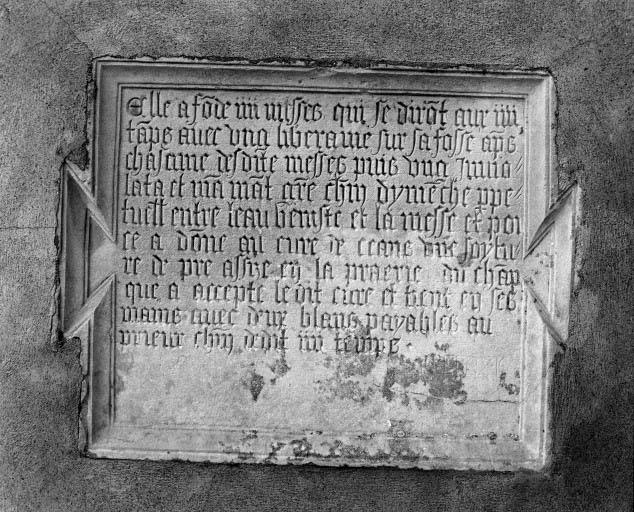 Elle a fōde iiii messes qui se dirōt aux iiii
tāps avec vng libera me sur sa fosse ap̄s
chascune desdit̄e messes puis vng Inuio
lata et mā māt grē chūn dymēche ppe
tuell entre leau beniste et la messe et por
ce a dōne au cure de ceans une
re de pre assize en la praerie du chap
que a accepte le dit cure et tient en ses
mains avec deux blans payables au
prieur chūn dit iiii temps